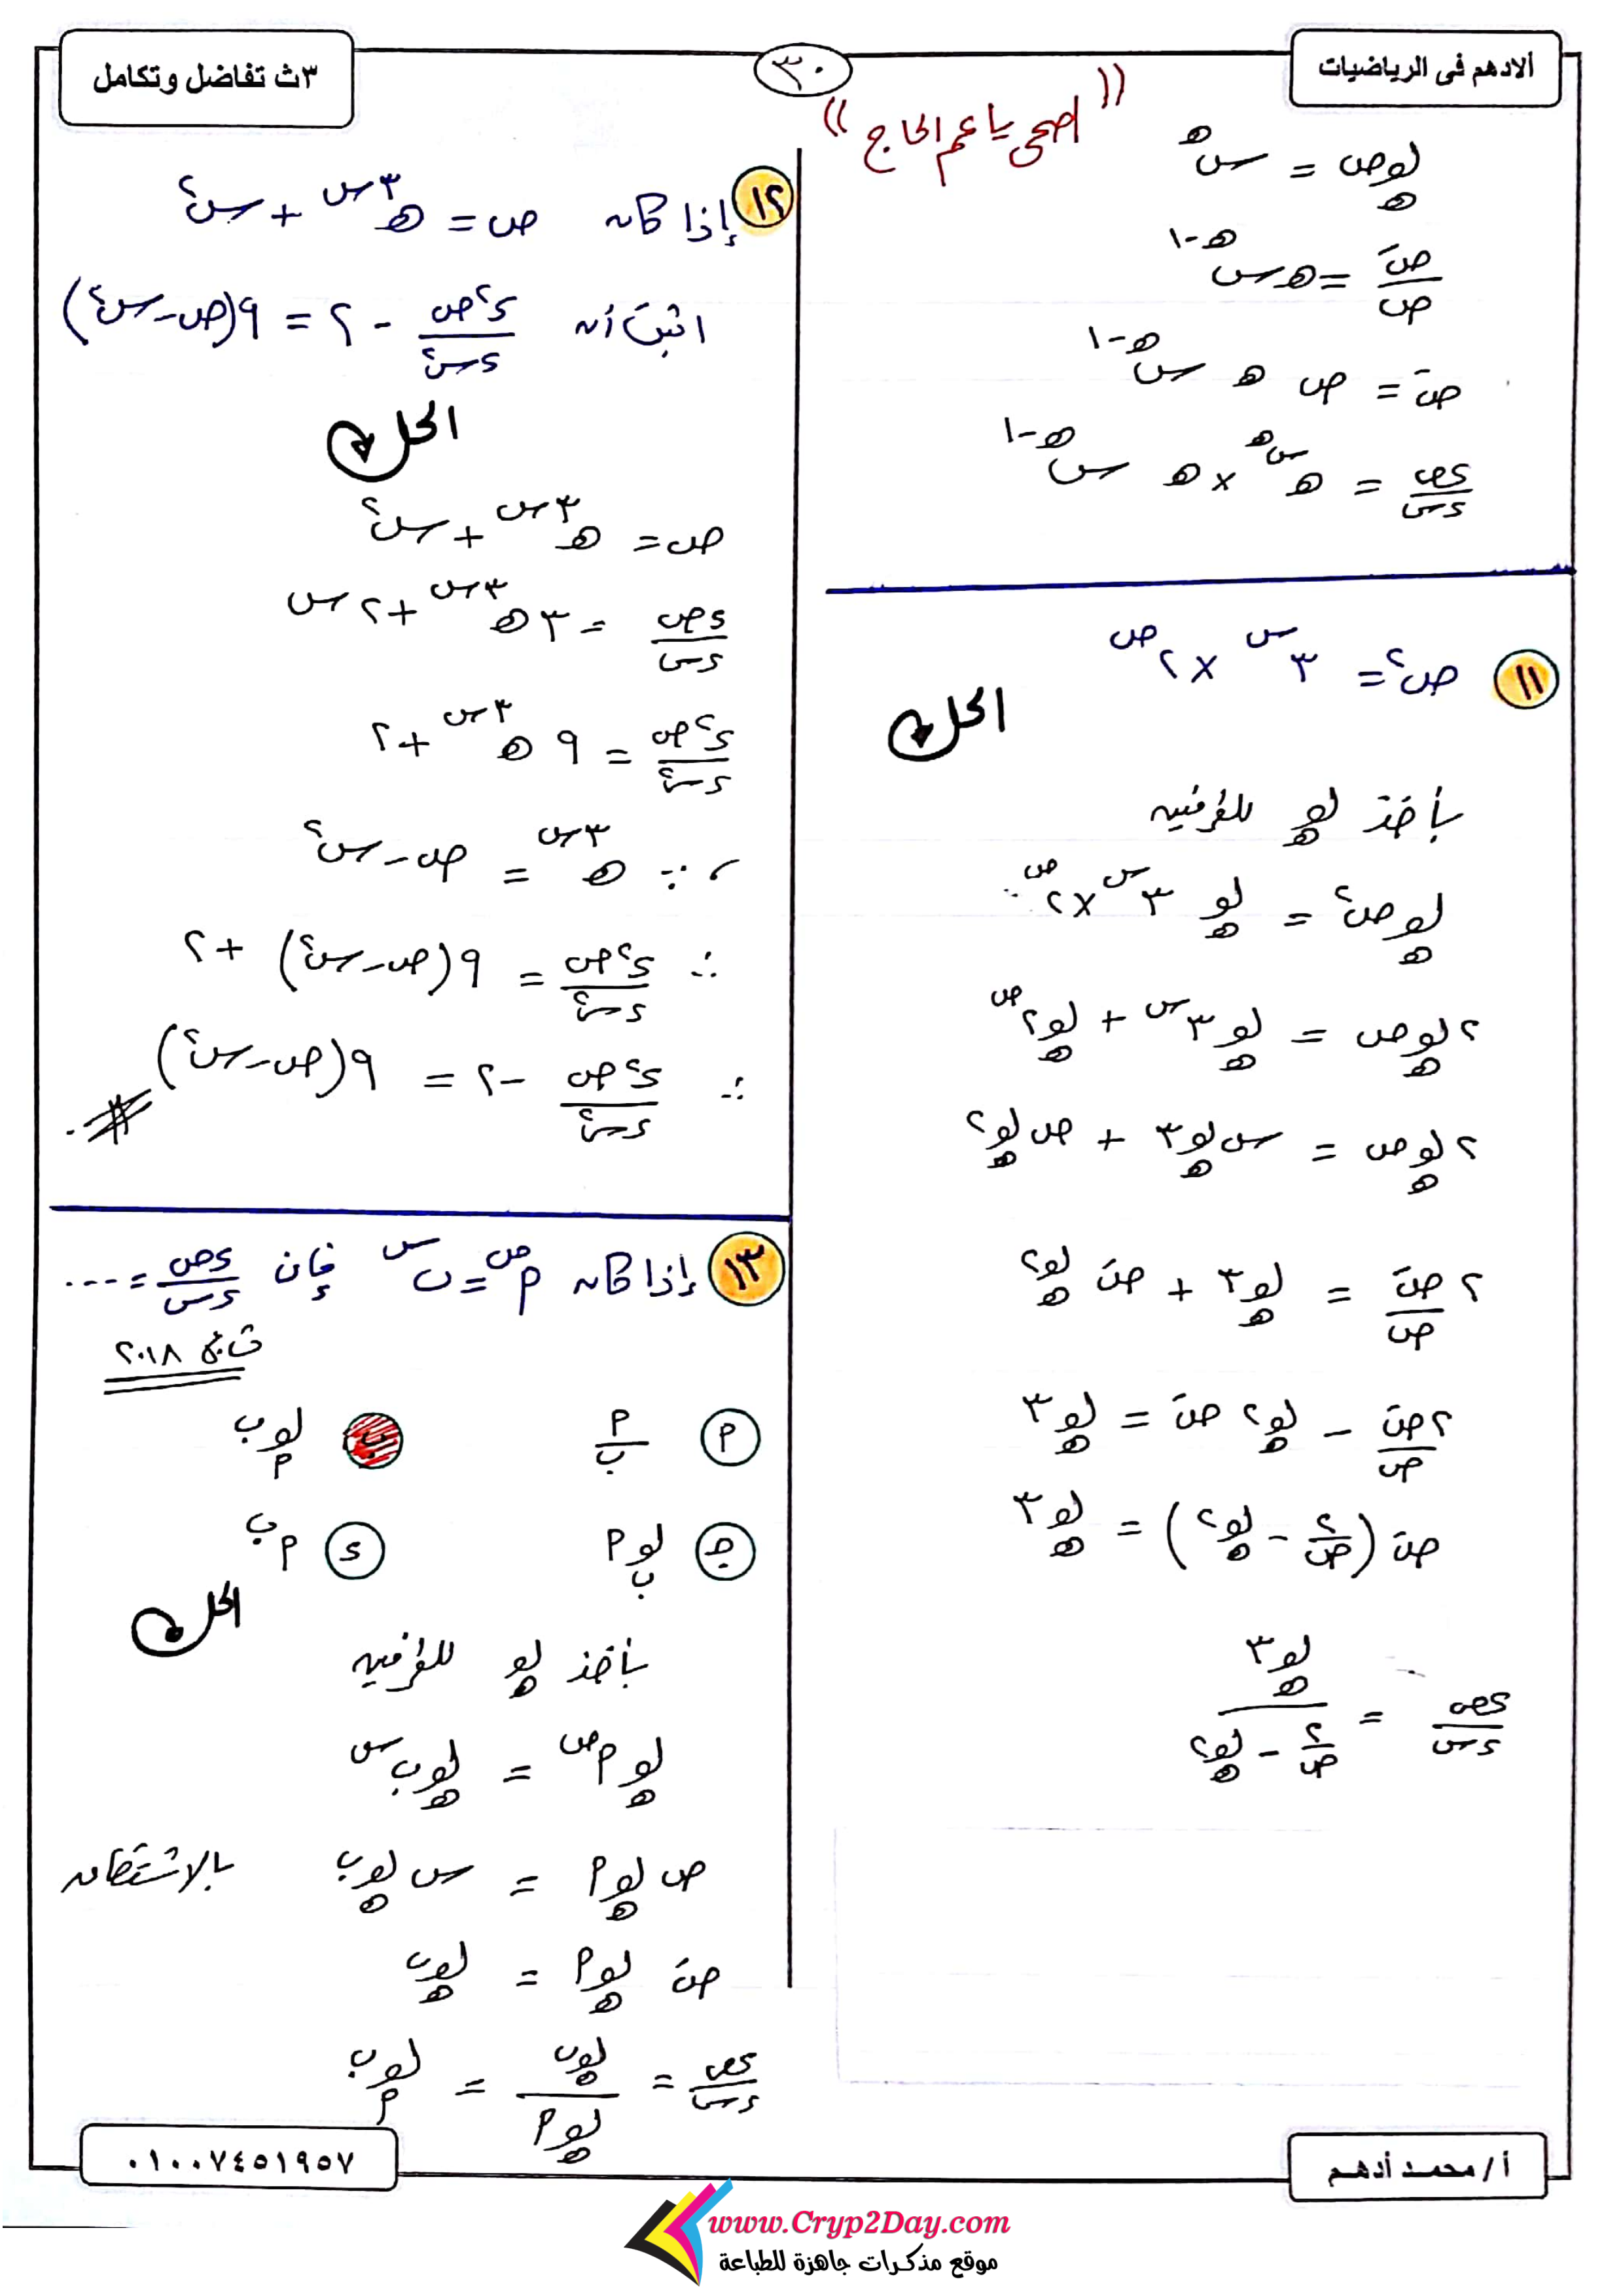 ألادهم فى الرياضيات
٣٠
٣ث تفاضل وتكامل
(( اصحى يا عم الحاج ))
لو_هـ ص = س^هـ
صَ/ص = هـ س^(هـ-١)
صَ = ص هـ س^(هـ-١)
ءص/ءس = هـ^(س^هـ) × هـ س^(هـ-١)
١١ ص^٢ = ٣^س × ٢^ص
الحل
بأخذ لو_هـ للطرفين
لو_هـ ص^٢ = لو_هـ ٣^س × ٢^ص
٢ لو_هـ ص = لو_هـ ٣^س + لو_هـ ٢^ص
٢ لو_هـ ص = س لو_هـ ٣ + ص لو_هـ ٢
٢ صَ/ص = لو_هـ ٣ + صَ لو_هـ ٢
٢صَ/ص - لو_هـ ٢ صَ = لو_هـ ٣
صَ (٢/ص - لو_هـ ٢) = لو_هـ ٣
ءص/ءس = لو_هـ ٣ / (٢/ص - لو_هـ ٢)
١٢ إذا كان ص = هـ^٣س + س^٢
اثبت أن ء^٢ص/ءس^٢ - ٢ = ٩(ص - س^٢)
الحل
ص = هـ^٣س + س^٢
ءص/ءس = ٣ هـ^٣س + ٢ س
ء^٢ص/ءس^٢ = ٩ هـ^٣س + ٢
، ∵ هـ^٣س = ص - س^٢
∴ ء^٢ص/ءس^٢ = ٩(ص - س^٢) + ٢
∴ ء^٢ص/ءس^٢ - ٢ = ٩(ص - س^٢) #
١٣ إذا كان م^ص = ب^س فإن ءص/ءس = ....
٢٠١٨
م م/ب ب لو_م ب
جـ لو_ب م ء م^ب
الحل
بأخذ لو_هـ للطرفين
لو_هـ م^ص = لو_هـ ب^س
ص لو_هـ م = س لو_هـ ب بالاشتقاق
صَ لو_هـ م = لو_هـ ب
ءص/ءس = لو_هـ ب / لو_هـ م = لو_م ب
أ / محمد أدهم
٠١٠٠٧٤٥١٩٥٧
www.Cryp2Day.com
موقع مذكرات جاهزة للطباعة